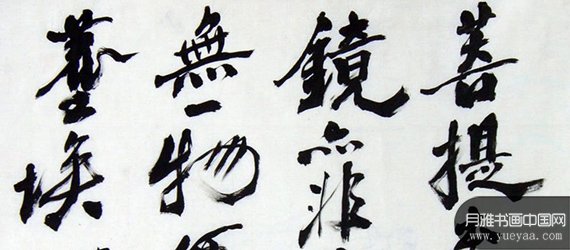 菩提
鏡亦非
無一物何
塵埃
月雅书画中国网
www.yueyaa.com